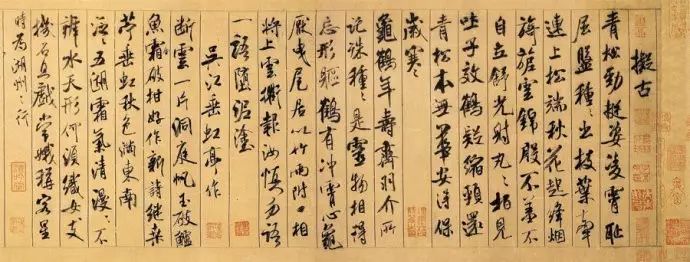 擬古
青松勁挺姿凌霄恥
屈盤種種出枝葉牽
連上松端秋花起絳煙
旖旎雲錦殷不羞不
自立舒光射丸丸柏見
吐子效鶴疑縮頸還
青松本無華安得保
歲寒
龜鶴年壽齊羽介所
託殊種種是靈物相得
忘形軀鶴有沖霄心龜
厭曳尾居以竹兩附口相
將上雲衢報汝慎勿語
一語墮泥塗
吳江垂虹亭作
斷雲一片洞庭帆玉破鱸
魚霜破柑好作新詩繼桑
苧垂虹秋色滿東南
泛泛五湖霜氣清漫漫不
辨水天形何須織女支
機石且戲常娥稱客星
時為湖州之行